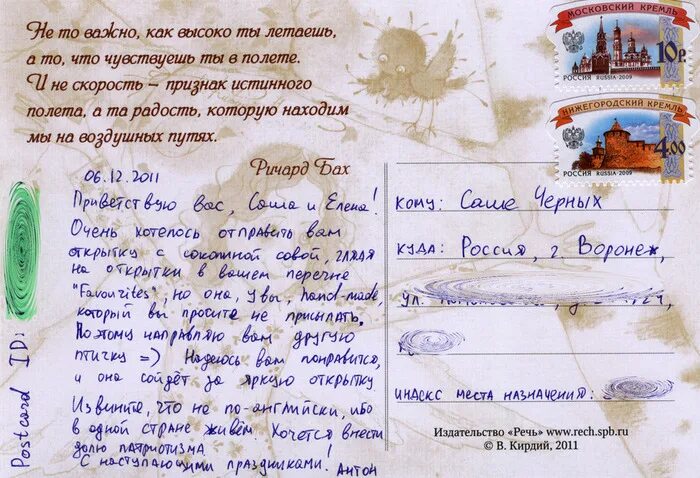 Не то важно, как высоко ты летаешь,
а то, что чувствуешь ты в полете.
И не скорость – признак истинного
полета, а та радость, которую находим
мы на воздушных путях.
Ричард Бах
МОСКОВСКИЙ КРЕМЛЬ
10р.
РОССИЯ RUSSIA-2009
НИЖЕГОРОДСКИЙ КРЕМЛЬ
4.00
РОССИЯ RUSSIA-2009
06.12.2011
Приветствую вас, Саша и Елена!
Очень хотелось отправить вам
открытку с сокожной совой, глядя
на открытки в вашем перечне
"Favourites", но она, увы, hand-made,
который вы просите не присылать.
Поэтому направляю вам другую
птичку =) Надеюсь вам понравится,
и она сойдёт за яркую открытку
Извините, что не по-английски, ибо
в одной стране живём. Хочется внести
долю патриотизма!
С наступающими праздниками! Антон
Postcard ID:
Кому: Саше Черных
Куда: Россия, г. Воронеж,
ул.
индекс места назначения:
Издательство «Речь» www.rech.spb.ru
© В. Кирдий, 2011